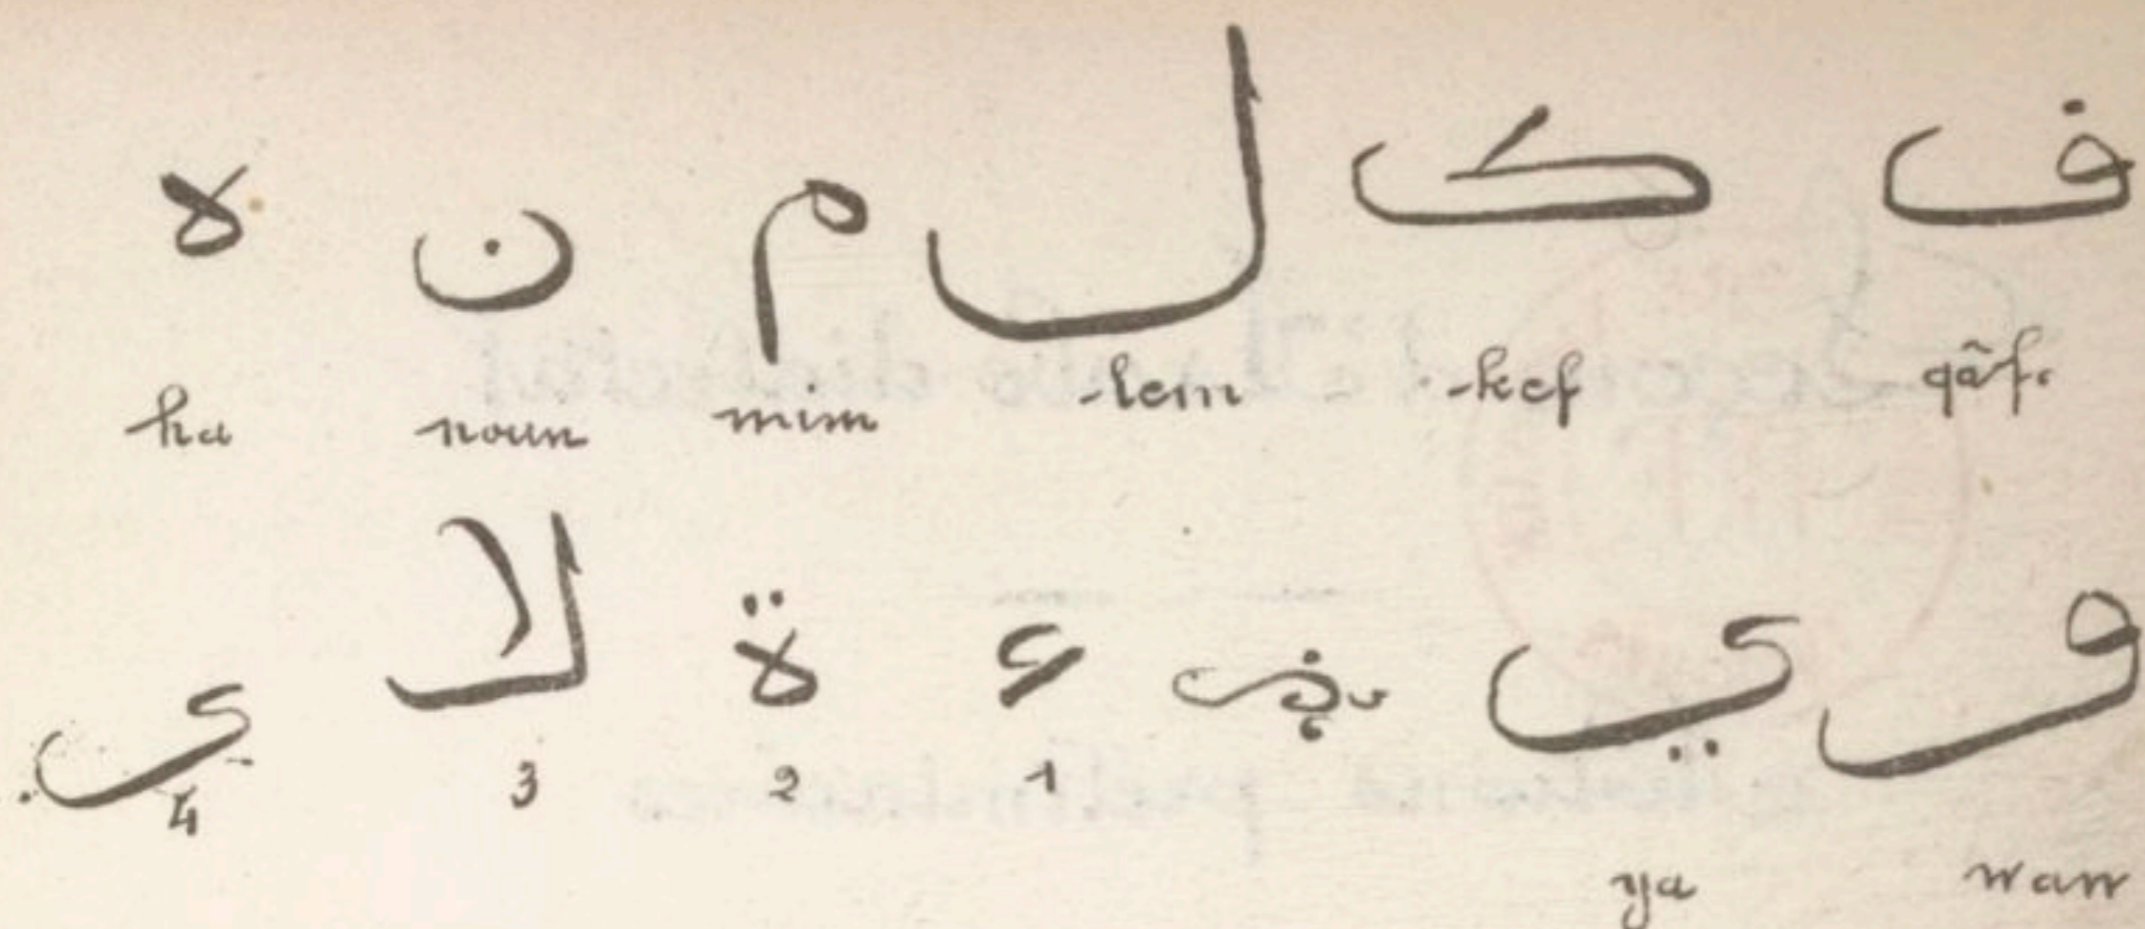 ڧ ک ل م ن ه
qâf. kef lem mim noun ha
و ي ء ة لا ى
1 2 3 4
waw ya